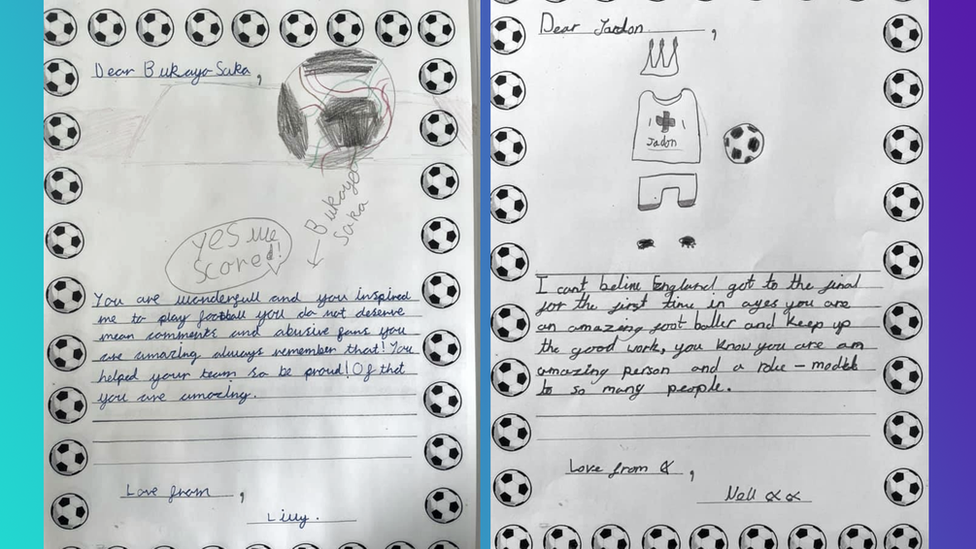 Dear Bukayo Saka,
Bukayo
Saka
yes we
scored!
You are wonderfull and you inspired
me to play football you do not deserve
mean comments and abusive fans you
are amazing always remember that! You
helped your team so be proud! Of that
you are amazing.
Love from,
Lilly.
Dear Jadon,
Jadon
I cant belive England got to the final
for the first time in ages you are
an amazing foot baller and keep up
the good work, you know you are an
amazing person and a role-model
to so many people.
Love from
Nell